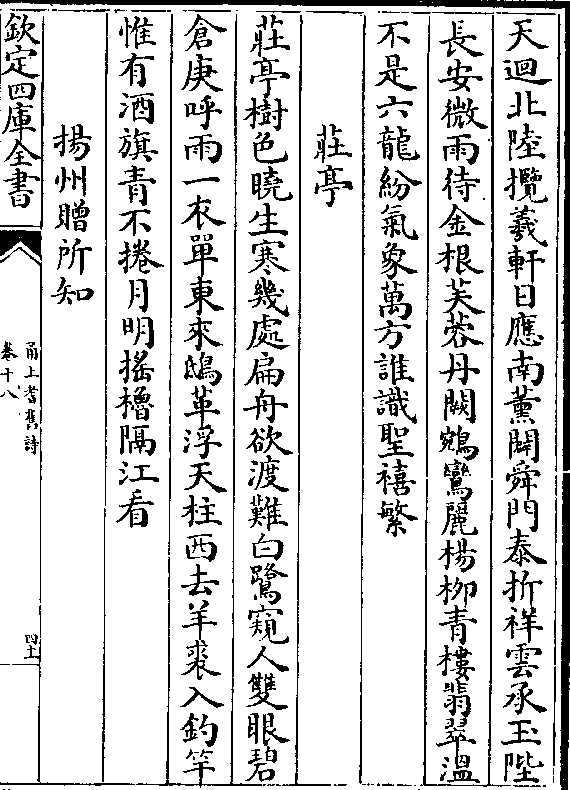 天迴北陸攬羲軒日應南薰闢舜門泰折祥雲承玉陛
長安微雨待金根芙蓉丹闕鵷鸞麗楊柳青樓翡翠溫
不是六龍紛氣象萬方誰識聖禧繁
莊亭
莊亭樹色曉生寒幾處扁舟欲渡難白鷺窺人雙眼碧
倉庚呼雨一衣單東來鴟革浮天柱西去羊裘入釣竿
惟有酒旗青不捲月明搖櫓隔江看
揚州贈所知
欽定四庫全書
甬上耆舊詩
卷十八
四十